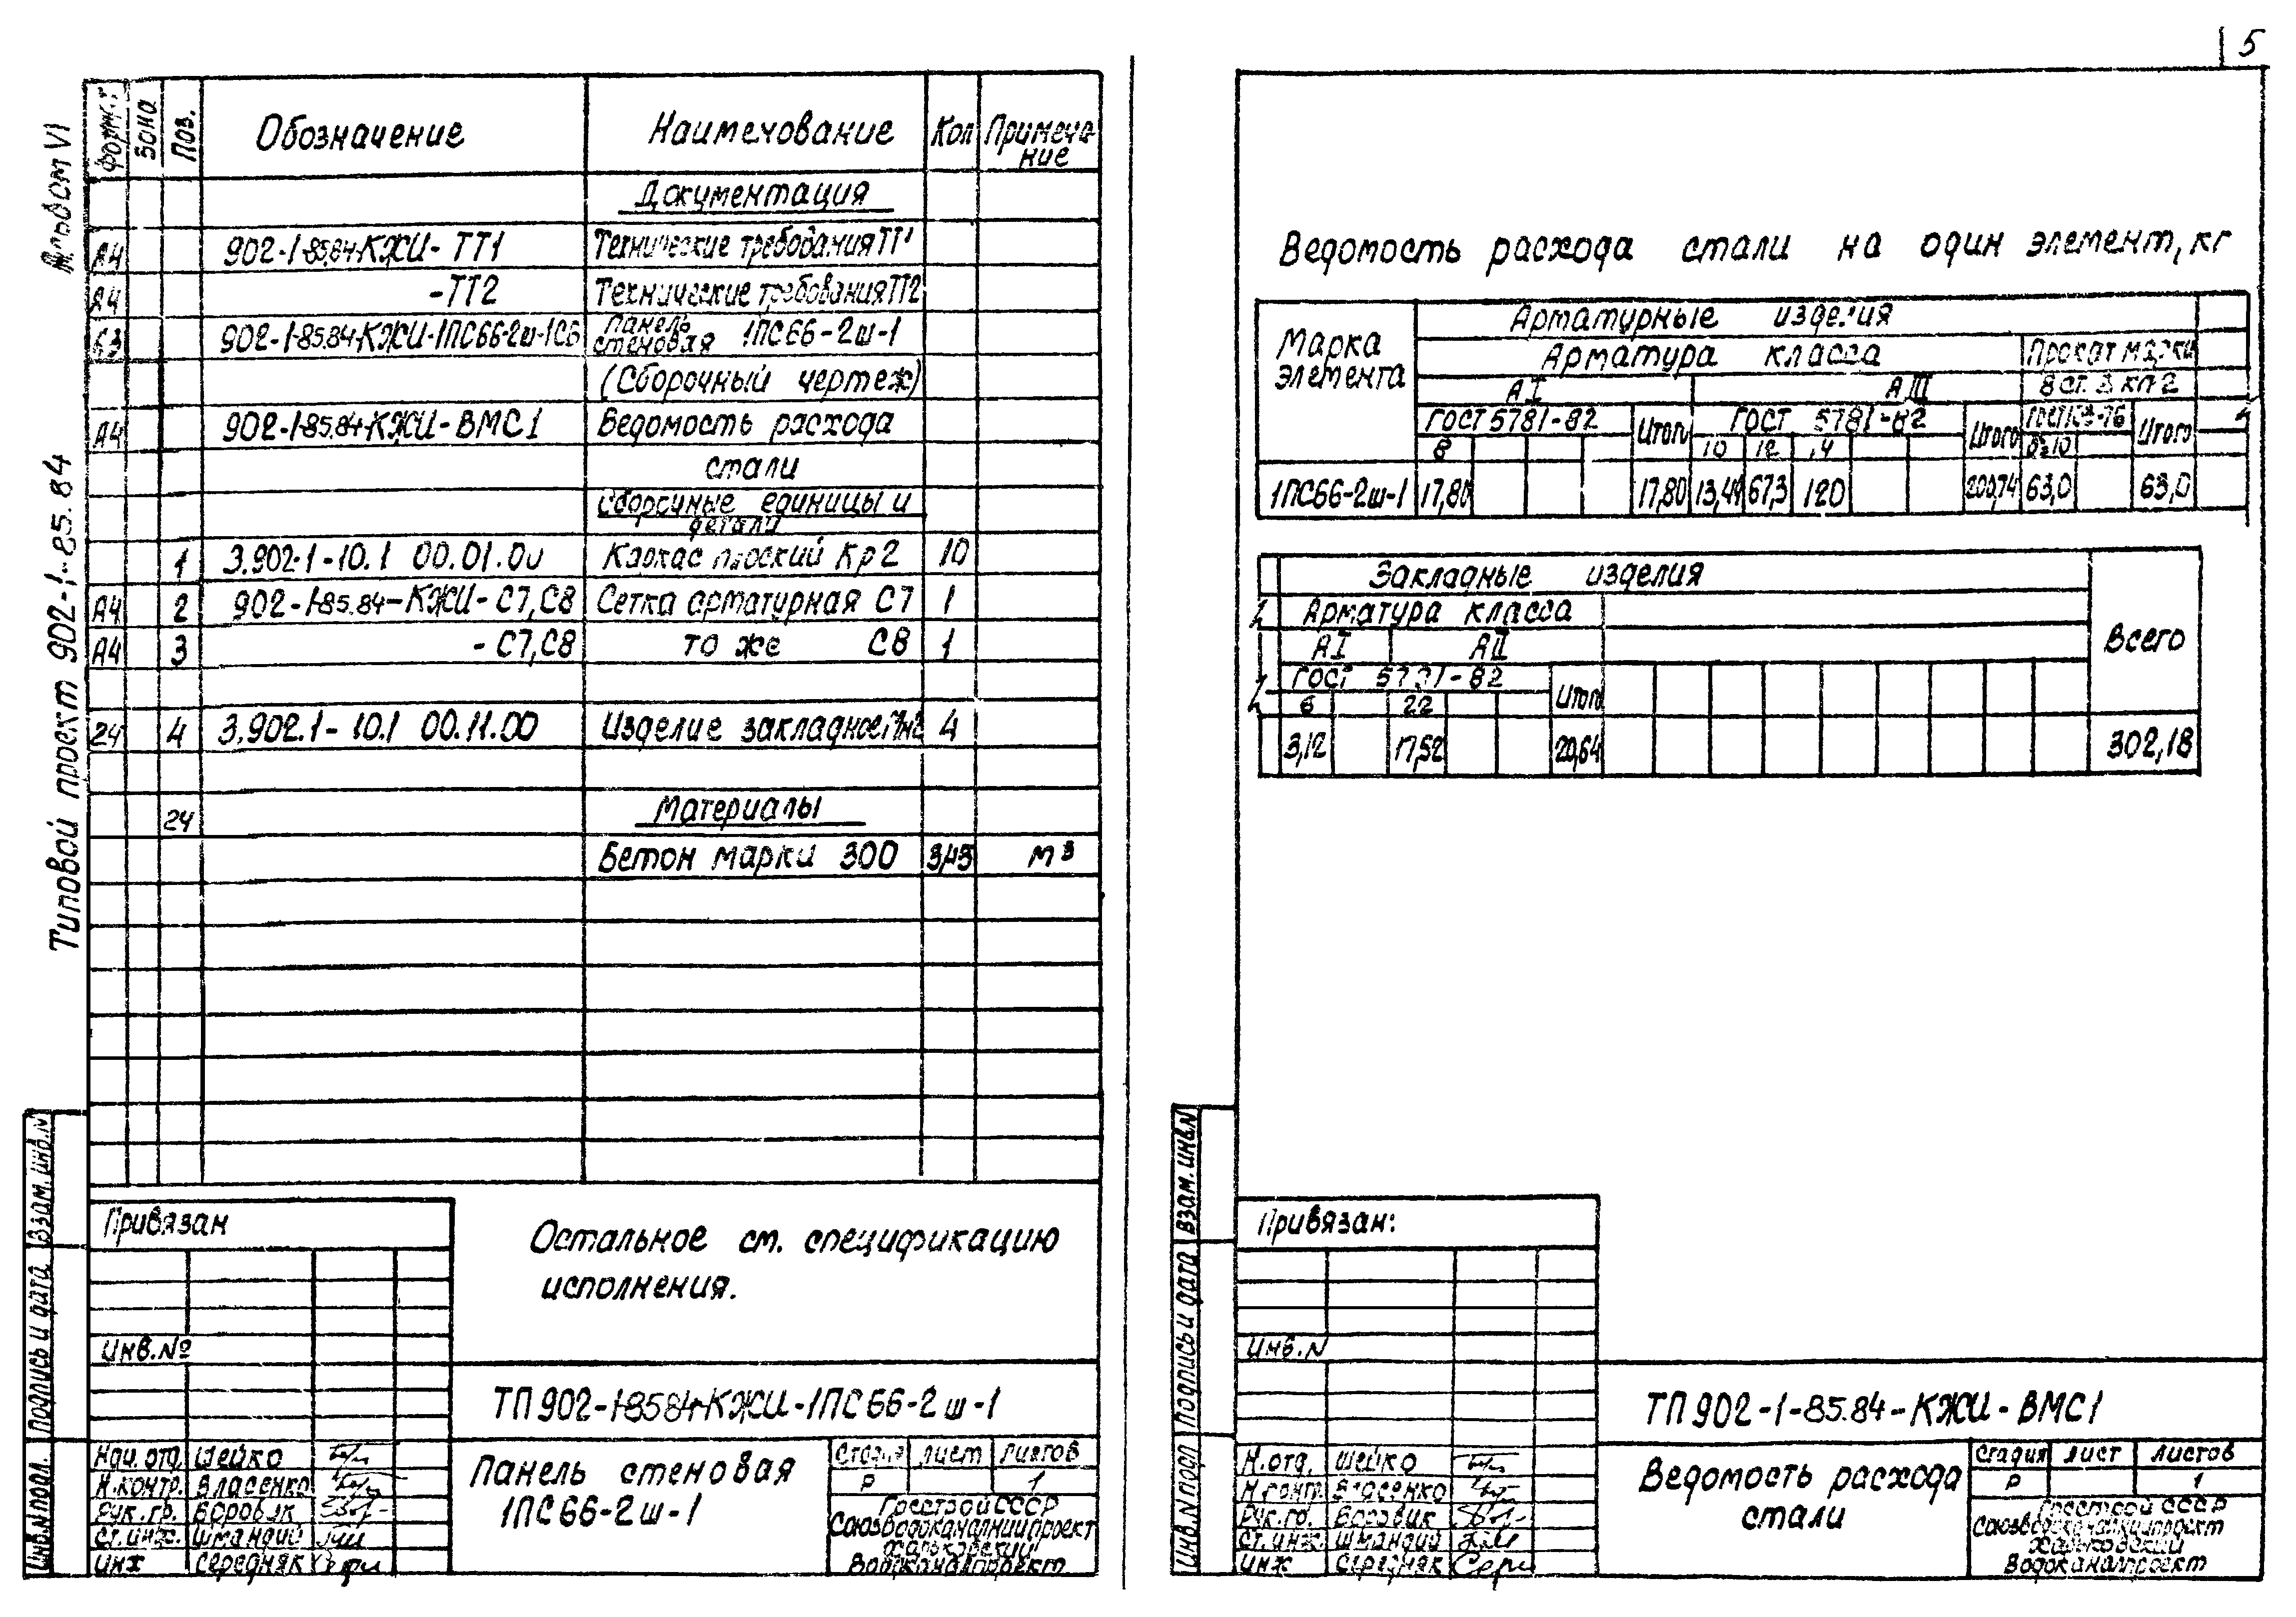 5
Альбом VI
Типовой проект 902-1-85.84
Формат Зона Поз. Обозначение Наименование Кол Примеча-
ние
Документация
А4 902-1-85.84-КЖИ-ТТ1 Технические требования ТТ1
А4 -ТТ2 Технические требования ТТ2
А3 902-1-85.84-КЖИ-1ПС66-2ш-1СБ Панель стеновая 1ПС66-2ш-1
(Сборочный чертеж)
А4 902-1-85.84-КЖИ-ВМС1 Ведомость расхода
стали
Сборочные единицы и
детали
1 3.902.1-10.1 00.01.00 Каркас плоский Кр2 10
А4 2 902-1-85.84-КЖИ-С7,С8 Сетка арматурная С7 1
А4 3 -С7,С8 то же С8 1
24 4 3.902.1-10.1 00.11.00 Изделие закладное 4
24 Материалы
Бетон марки 300 м³
Взам. инв.N
Подпись и дата
Инв.N подл.
Привязан
Инв.№
Остальное см. спецификацию
исполнения.
ТП 902-1-85.84-КЖИ-1ПС66-2ш-1
Нач. отд. Шейко
Н.контр. Власенко
Рук. гр. Боровик
Ст.инж. Шмандий
Инж Середняк
Панель стеновая
1ПС66-2ш-1
Стадия Лист Листов
Р 1
Госстрой СССР
Союзводоканалниипроект
Харьковский
Водоканалпроект
Ведомость расхода стали на один элемент, кг
Марка
элемента
Арматурные изделия
Арматура класса Прокат марки
АI АIII В ст. 3 кп 2
ГОСТ 5781-82 Итого ГОСТ 5781-82 Итого Итого
8 10 12 14
1ПС66-2ш-1 17,80 17,80 13,44 67,3 120 200,74 63,0 63,0
Закладные изделия
Арматура класса
АI АII
ГОСТ 5781-82 Итого
Всего
6 22
3,12 17,52 20,64 302,18
Взам. инв.N
Подпись и дата
Инв.N подл
Привязан:
Инв.N
ТП 902-1-85.84-КЖИ-ВМС1
Н.отд. Шейко
Н.контр. Власенко
Рук.гр. Боровик
Ст.инж. Шмандий
Инж Середняк
Ведомость расхода
стали
Стадия Лист Листов
Р 1
Госстрой СССР
Союзводоканалниипроект
Харьковский
Водоканалпроект